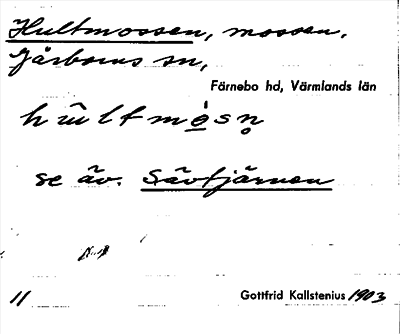 Hultmossen, mossen,
Gåsborns sn,
Färnebo hd, Värmlands län
se äv. Sävtjärnen
11
Gottfrid Kallstenius 1903